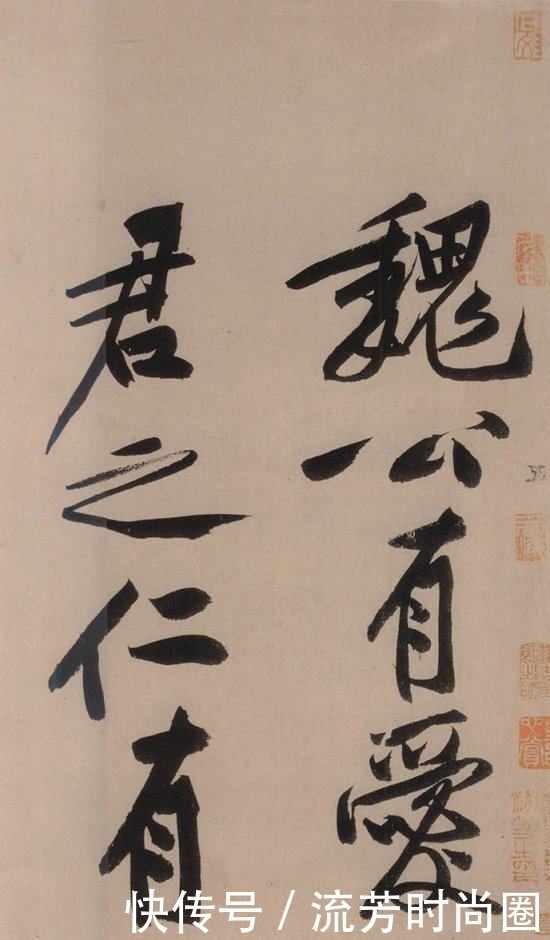 魏公有愛
君之仁有
快传号/流芳时尚圈